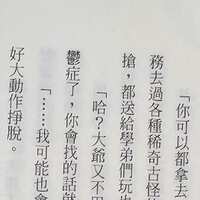 「你可以都拿去
務去過各種稀奇古怪
搶，都送給學弟們玩也
「哈？大爺又不田
鬱症了，你會找的話就
「……我可能也會
好大動作掙脫。